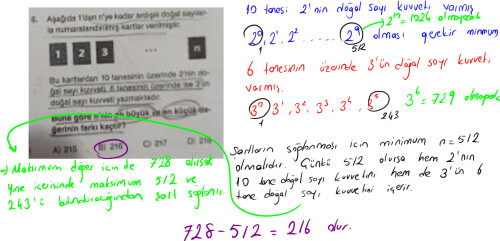 6. Aşağıda 1'den n'ye kadar ardışık doğal sayılar-
la numaralandırılmış kartlar verilmiştir.
1 2 3 ... n
Bu kartlardan 10 tanesinin üzerinde 2'nin do-
ğal sayı kuvveti, 6 tanesinin üzerinde ise 3'ün
doğal sayı kuvveti yazmaktadır.
Buna göre n'nin en büyük ve en küçük de-
ğerinin farkı kaçtır?
A) 215 B) 216 C) 217 D) 218
10 tanesi 2'nin doğal sayı kuvveti varmış
2¹⁰ = 1024 olmayacak
2⁰, 2¹, 2² ...... 2⁹ olması gerekir minimum
1 512
6 tanesinin üzerinde 3'ün doğal sayı kuvveti
varmış.
3⁰ 3¹, 3², 3³, 3⁴, 3⁵ 3⁶ = 729 olmayacak
1 243
Şartların sağlanması için minimum n = 512
olmalıdır. Çünkü 512 olursa hem 2'nin
10 tane doğal sayı kuvvetini hem de 3'ün 6
tane doğal sayı kuvvetini içerir.
Maksimum değer için de 728 olursa
yine içerisinde maksimum 512 ve
243'ü bulunduracağından şart sağlanır
728 - 512 = 216 olur.